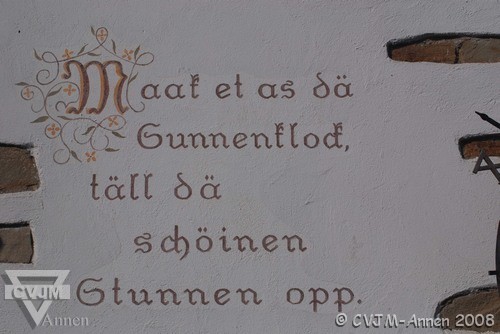 Maak et as dä
Sunnenklock,
täll dä
schöinen
Stunnen opp.
CVJM
Annen
© CVJM-Annen 2008